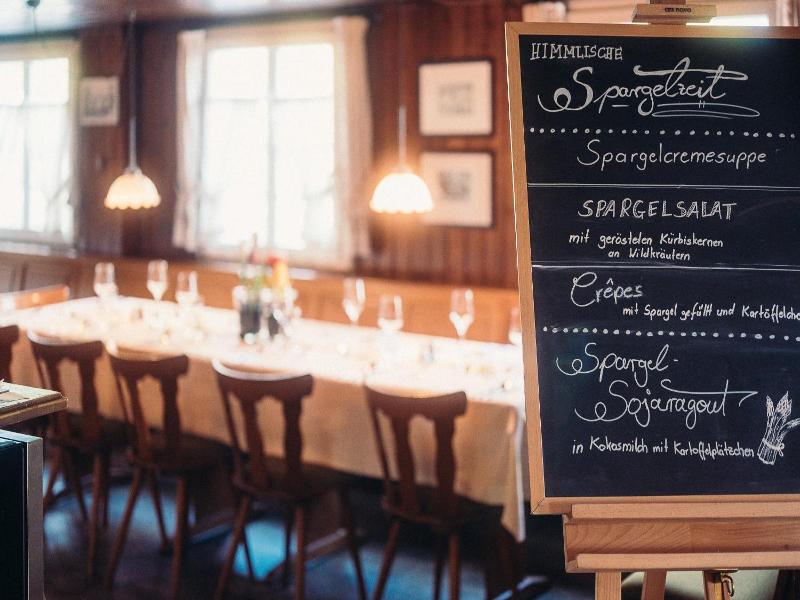 HIMMLISCHE
Spargelzeit
Spargelcremesuppe
SPARGELSALAT
mit gerösteten Kürbiskernen
an Wildkräutern
Crêpes
mit Spargel gefüllt und Kartöffelche
Spargel-
Sojaragout
in Kokosmilch mit Kartoffelplätzchen